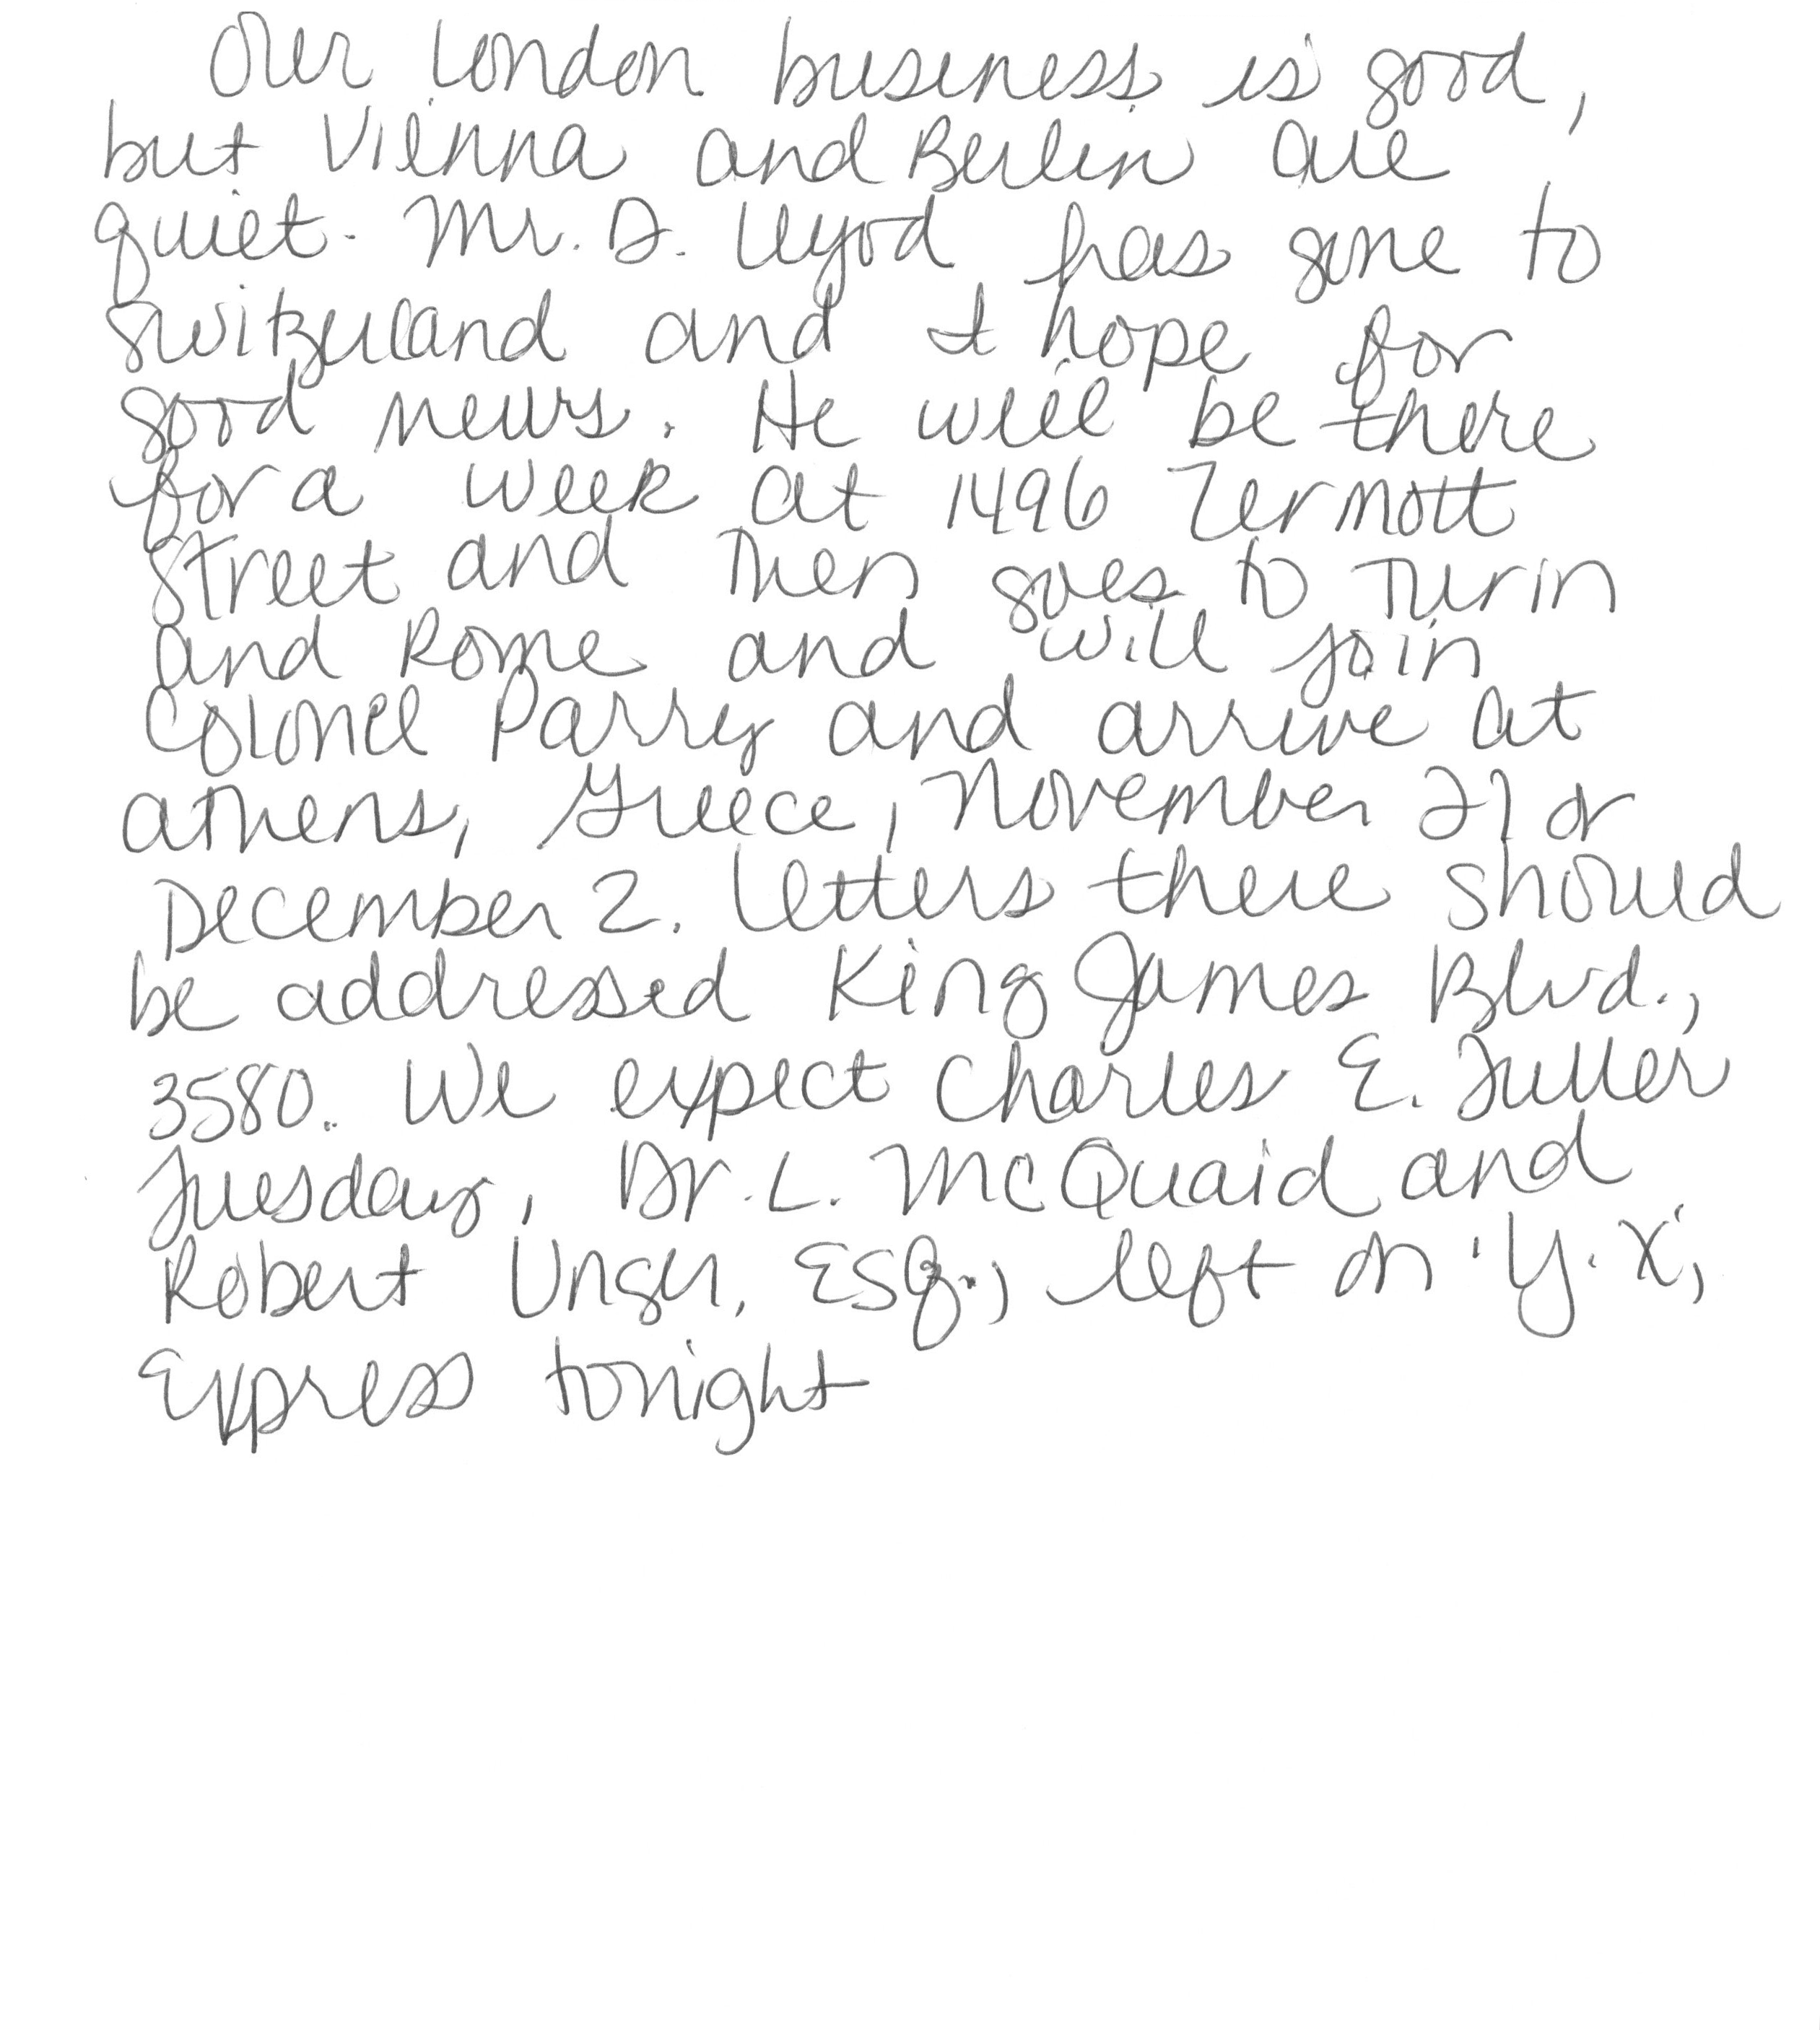 Our London business is good,
but Vienna and Berlin are
quiet. Mr. D. Lloyd has gone to
Switzerland and I hope for
good news. He will be there
for a week at 1496 Zermott
Street and then goes to Turin
and Rome and will join
Colonel Parry and arrive at
Athens, Greece, November 27 or
December 2. Letters there should
be addressed King James Blvd.,
3580. We expect Charles E. Fuller
Tuesday, Dr. L. McQuaid and
Robert Unger, Esq., left on 'Y. X,
Express tonight